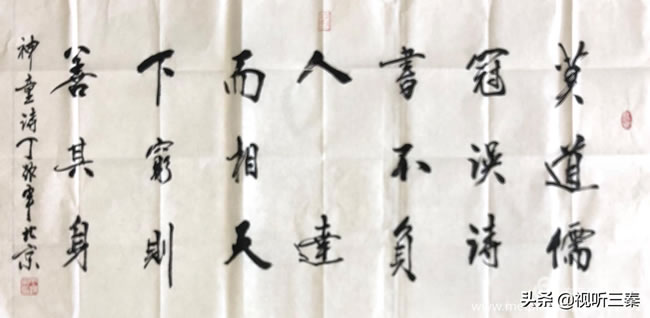 莫道儒
冠误诗
書不负
人達
而相天
下窮則
善其身
神童诗丁亥年北京
头条 @视听三秦